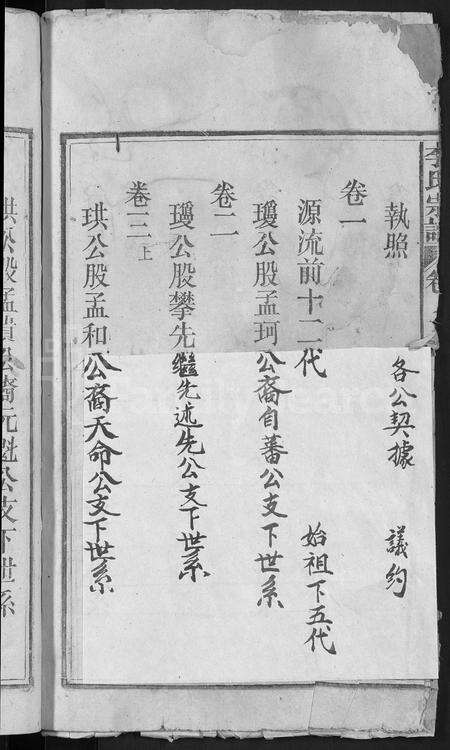 李氏宗譜
執照 各公契據 議約
卷一
源流前十二代 始祖下五代
瓊公股孟珂公裔自蕃公支下世系
卷二
瓊公股攀先繼先述先公支下世系
卷三上
珙公股孟和公裔天命公支下世系
珙公股孟賁公裔元魁公支下世系